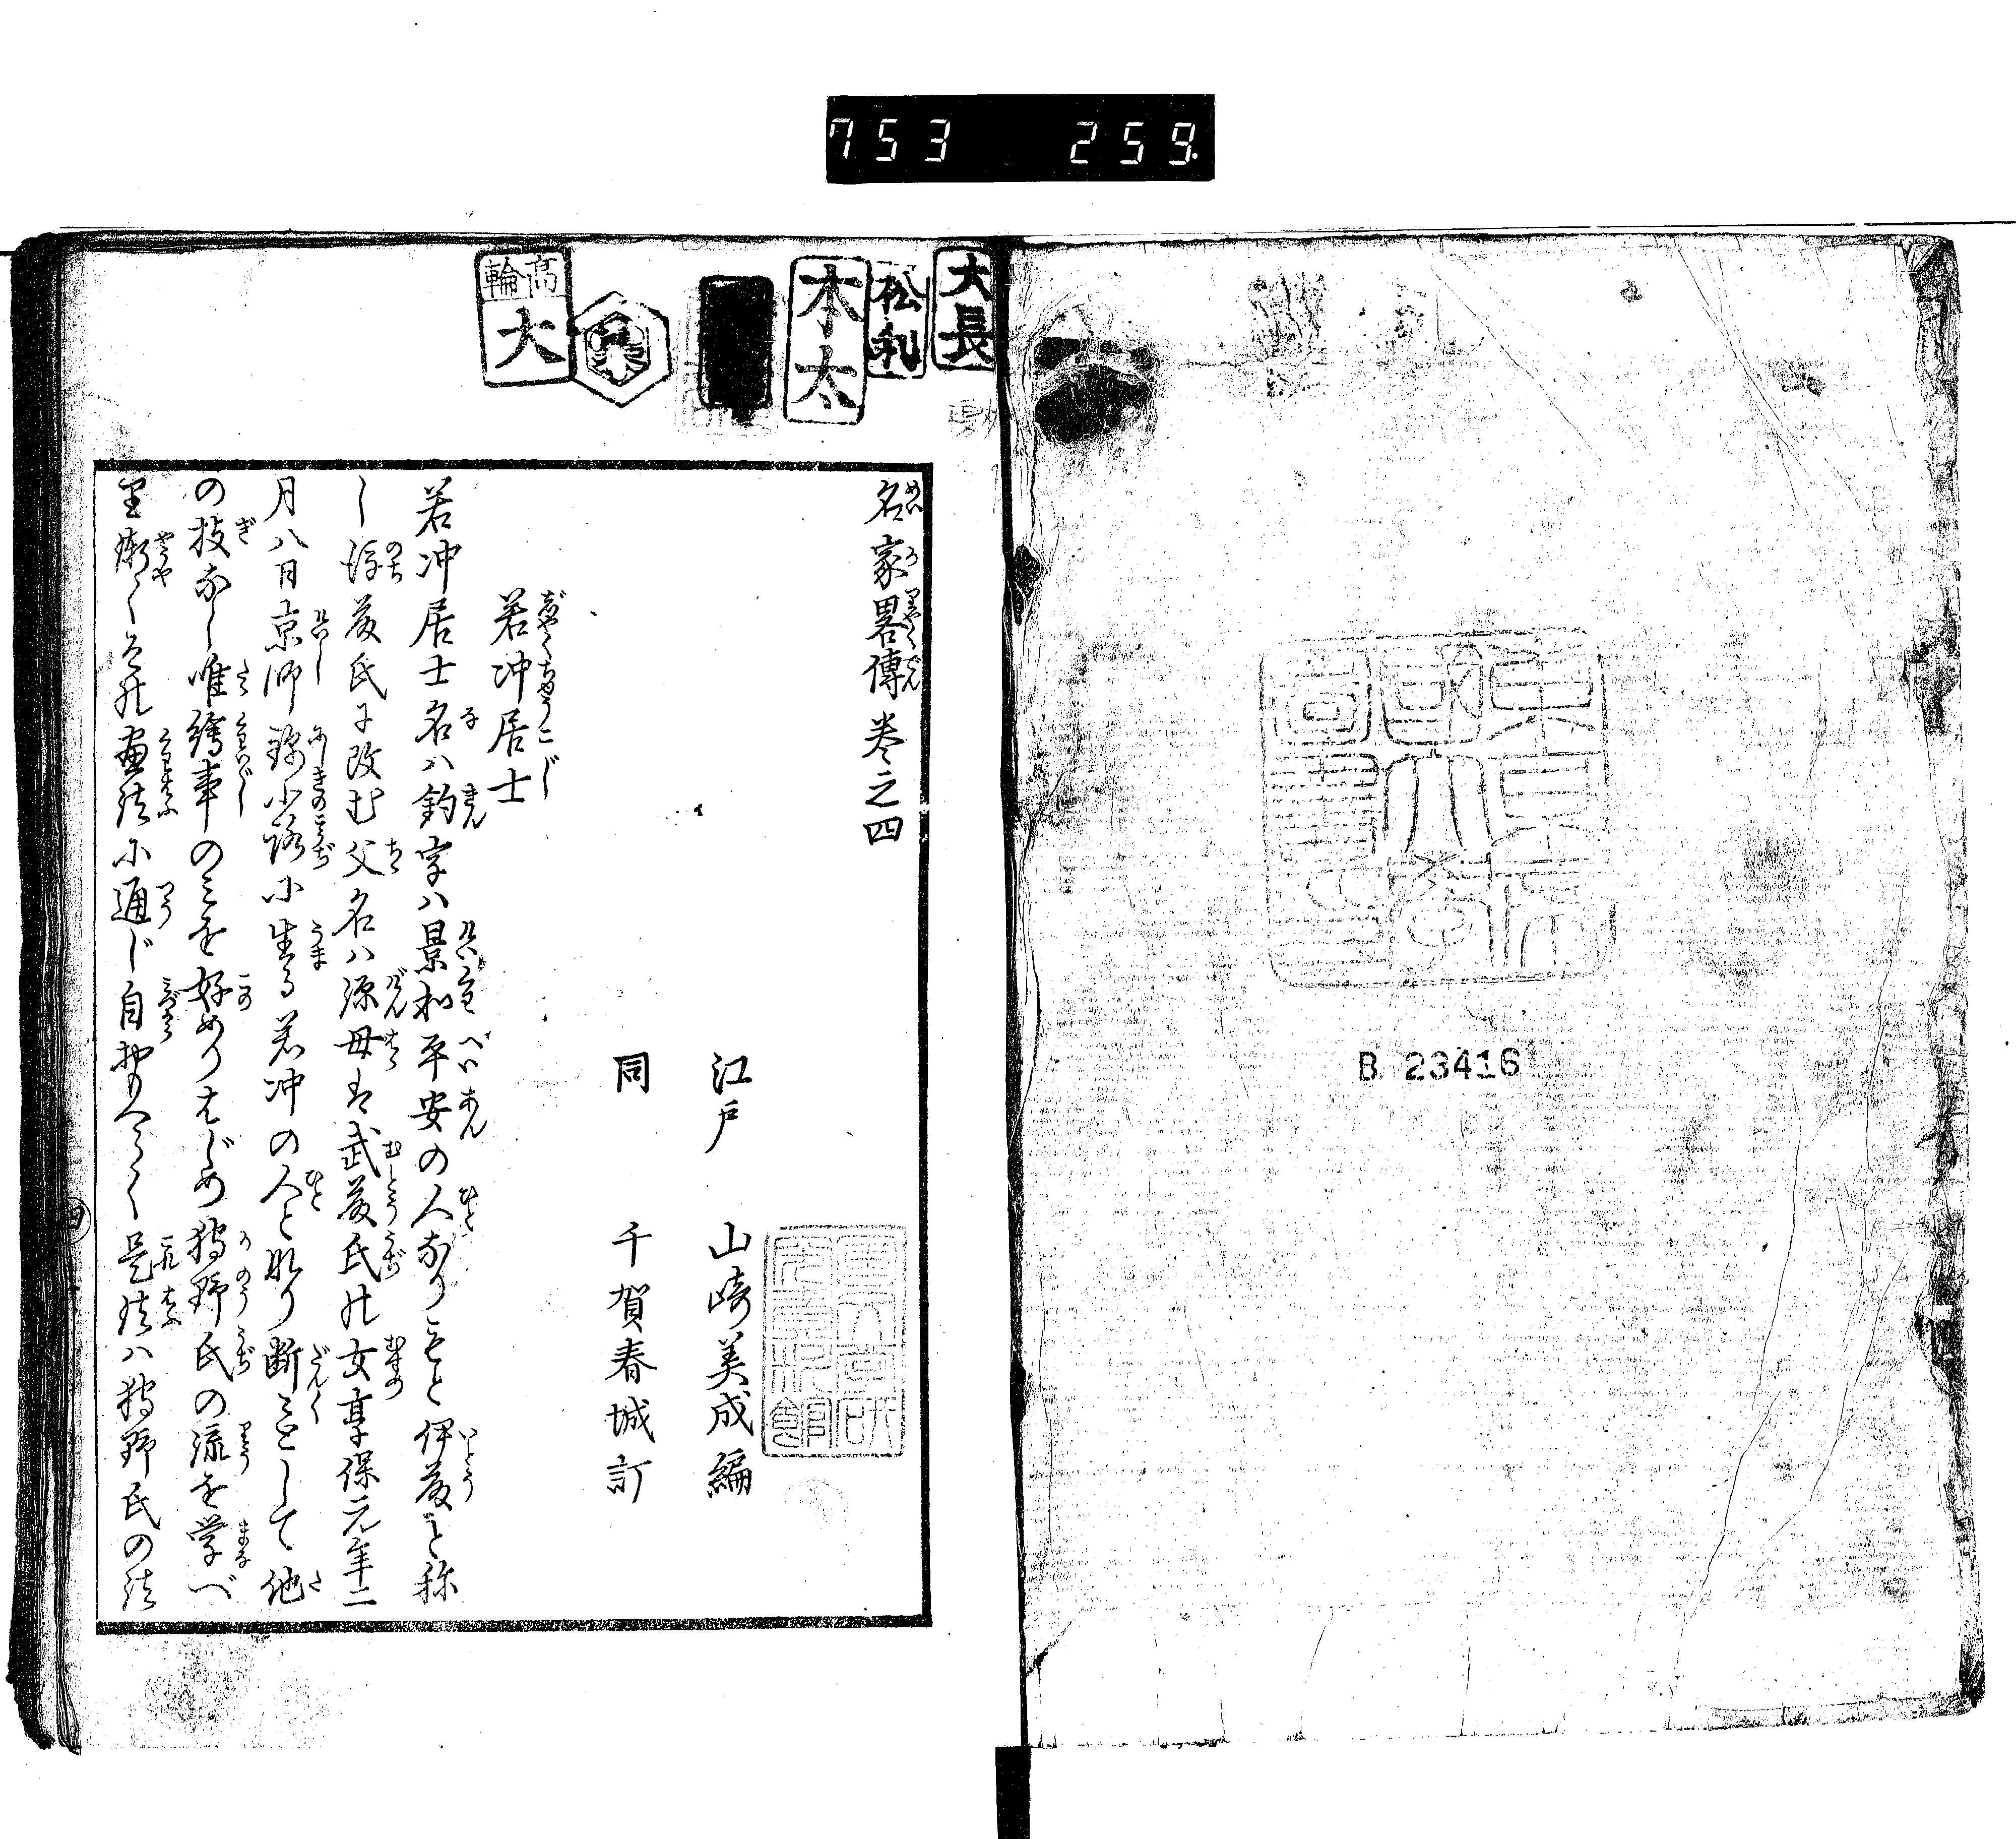 753 259
大長
松利
本太
高輪
大
B 23416
名家畧傳巻之四
江戸 山崎美成編
同 千賀春城訂
若冲居士
若冲居士名ハ鈞字ハ景和平安の人なりもと伊藤と称
し後藤氏に改む父名ハ源母は武藤氏の女享保元年二
月八日京師錦小路に生る若冲の人となり断々として他
の技なし唯繪事のみを好めりはじめ狩野氏の流を学べ
り漸くその画法に通じ自おもへらく是法ハ狩野氏の法